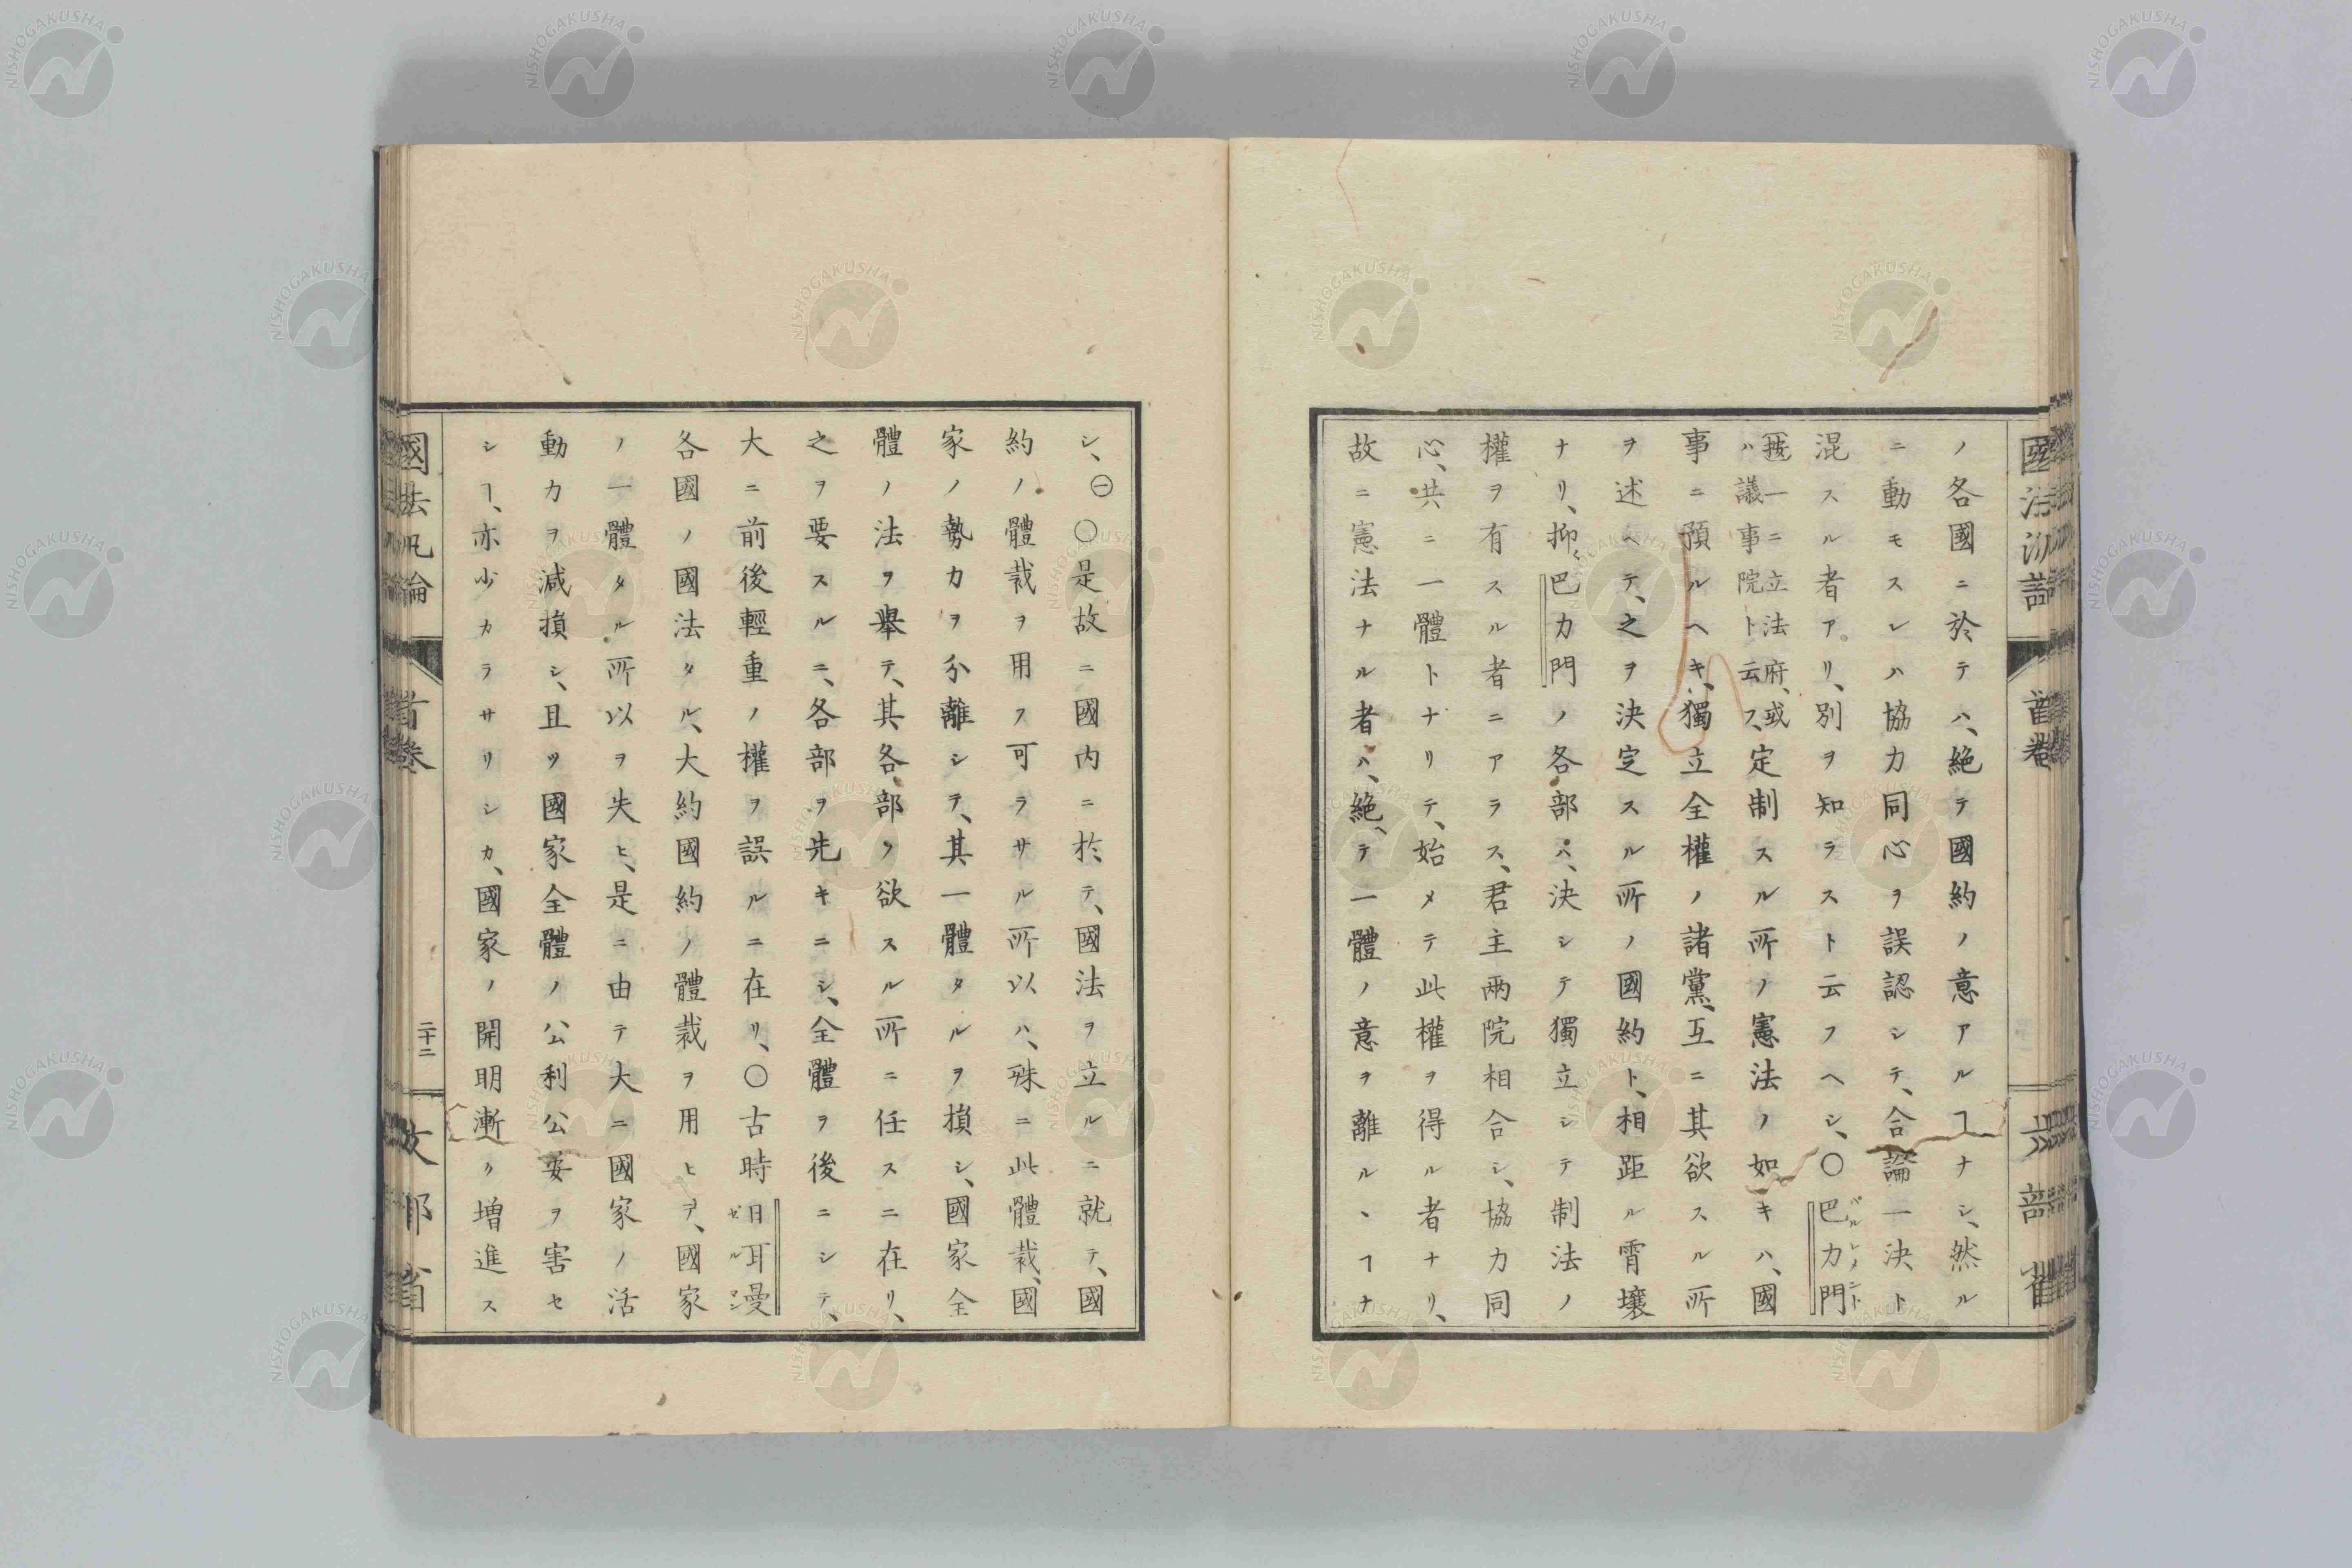 ノ各國ニ於テハ、絶テ國約ノ意アルヿナシ、然ル
ニ動モスレハ協力同心ヲ誤認シテ、合論一決ト
混スル者アリ、別ヲ知ラスト云フヘシ、〇巴力門
バルレメント
一ニ立法府、或
ハ議事院ト云フ、定制スル所ノ憲法ノ如キハ、國
事ニ預ルヘキ、獨立全權ノ諸黨、互ニ其欲スル所
ヲ述ヘテ、之ヲ決定スル所ノ國約ト、相距ル霄壤
ナリ、抑〻巴力門ノ各部ハ、決シテ獨立シテ制法ノ
權ヲ有スル者ニアラス、君主兩院相合シ、協力同
心、共ニ一體トナリテ、始メテ此權ヲ得ル者ナリ、
故ニ憲法ナル者ハ、絶テ一體ノ意ヲ離ルヽヿナ
シ、㊀〇是故ニ國内ニ於テ、國法ヲ立ルニ就テ、國
約ノ體裁ヲ用フ可ラサル所以ハ、殊ニ此體裁、國
家ノ勢力ヲ分離シテ、其一體タルヲ損シ、國家全
體ノ法ヲ擧テ、其各部ノ欲スル所ニ任スニ在リ、
之ヲ要スルニ、各部ヲ先キニシ、全體ヲ後ニシテ、
大ニ前後輕重ノ權ヲ誤ルニ在リ、〇古時日耳曼
ゼルマン
各國ノ國法タル、大約國約ノ體裁ヲ用ヒテ、國家
ノ一體タル所以ヲ失ヒ、是ニ由テ大ニ國家ノ活
動力ヲ減損シ、且ツ國家全體ノ公利公安ヲ害セ
シヿ、亦少カラサリシカ、國家ノ開明漸ク增進ス
國法汎論
首卷
二十二
文部省